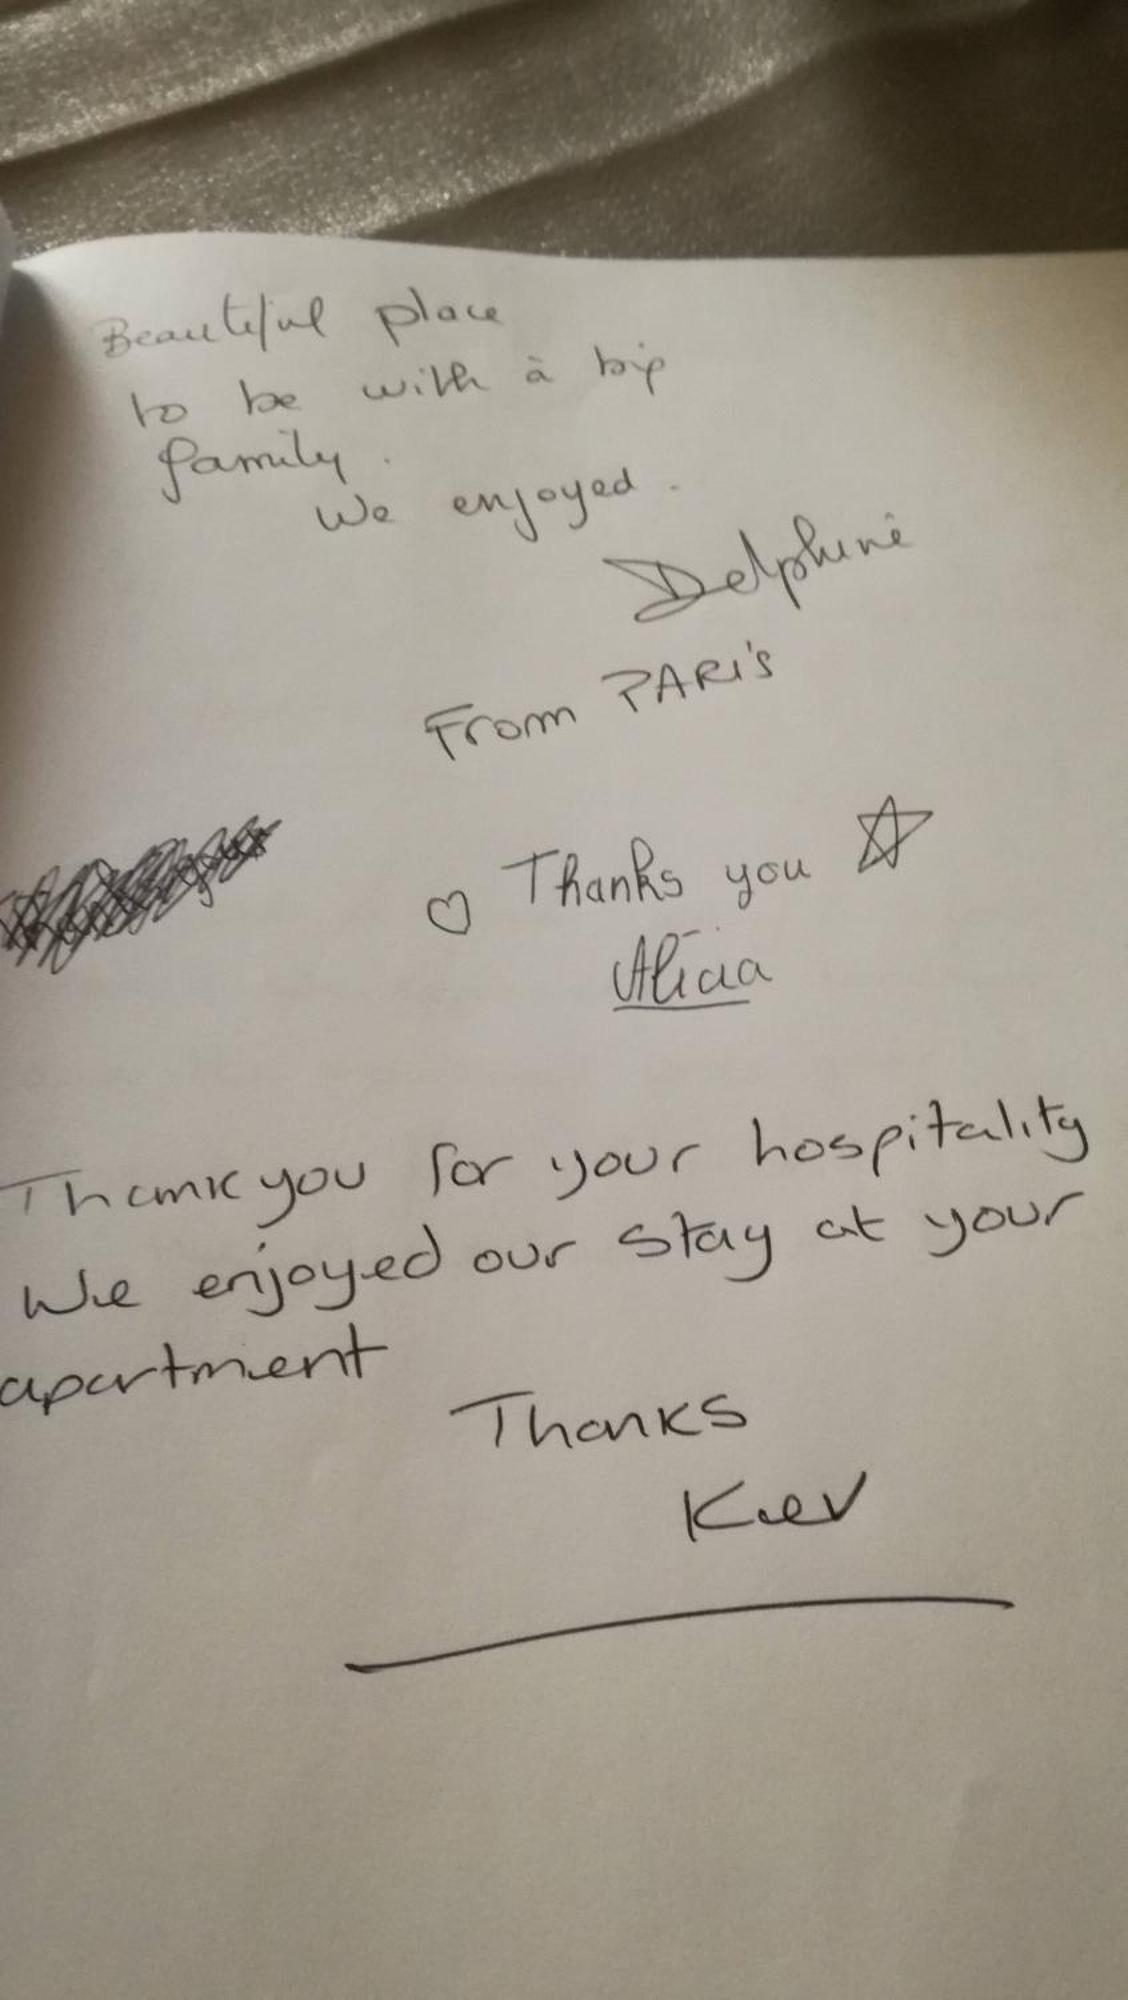 Beautiful place
to be with à big
family.
We enjoyed.
Delphine
From PARIS
Thanks you
Alicia
Thank you for your hospitality
We enjoyed our stay at your
apartment
Thanks
Kev